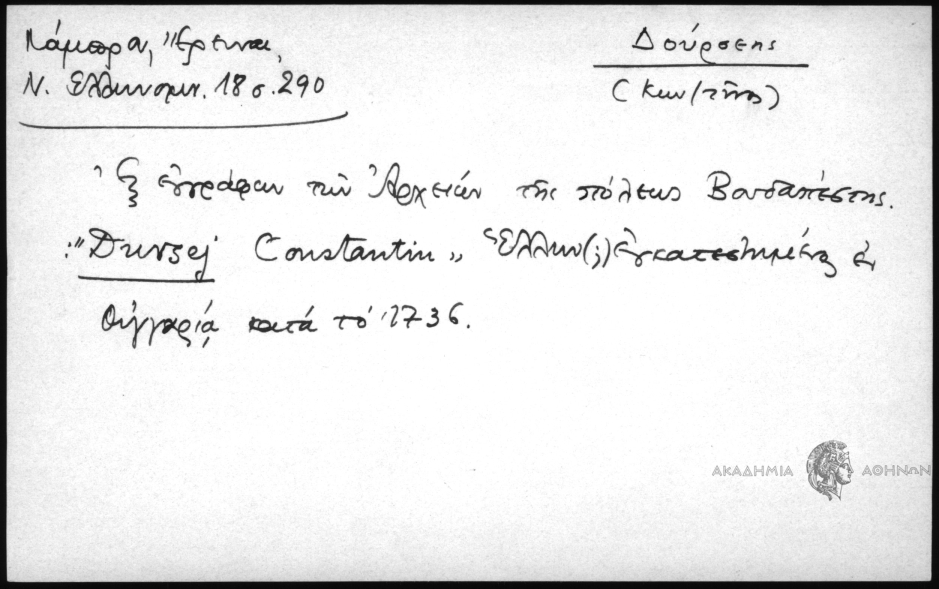 Λάμπρα, Ἔρευναι,
Ν. Ἑλληνομν. 18 σ. 290
Δούρσεης
(Κων/τῖνος)
Ἐξ ἐγγράφων τῶν Ἀρχείων τῆς πόλεως Βουδαπέστης.
: "Dursej Constantin„ Ἕλλην(;) ἐγκατεστημένος ἐν
Οὐγγαρίᾳ κατά τό 1736.
ΑΚΑΔΗΜΙΑ ΑΘΗΝΩΝ